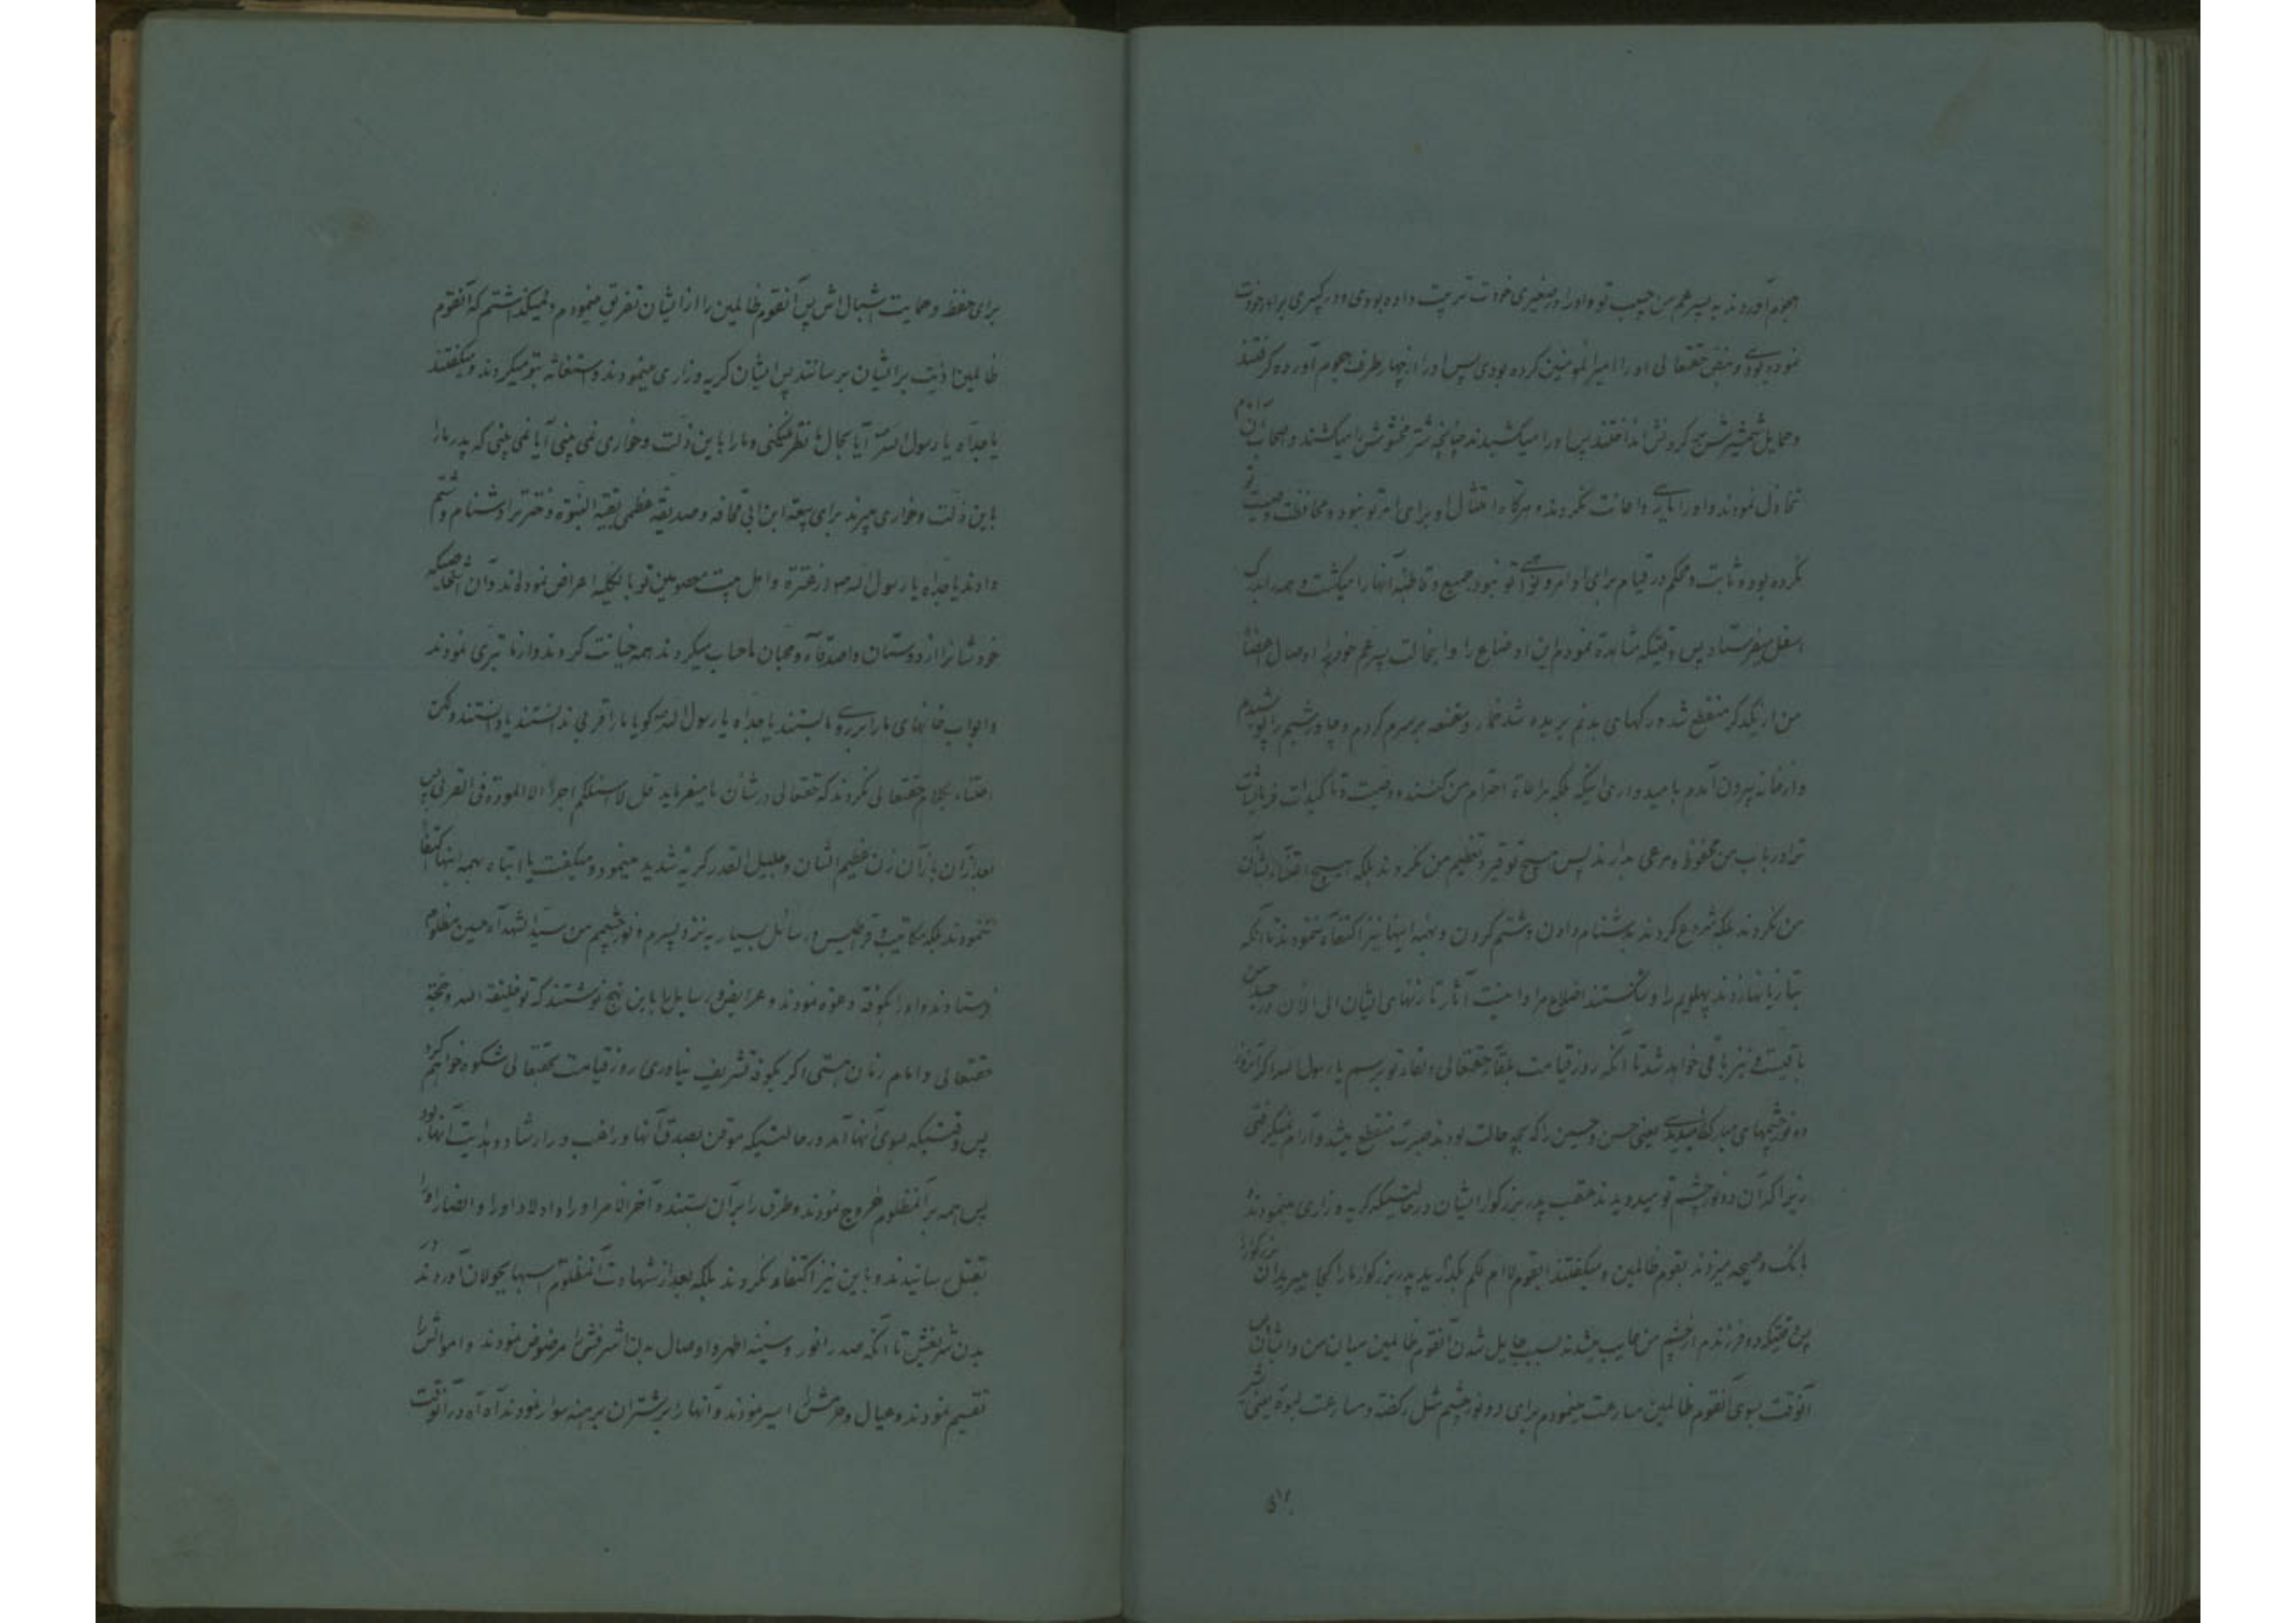 هجوم آوردند به پسر عم من حبیب تو و او را در صغیری خودت تربیت داده بودی و در کبیری برادر خودت
نموده بودی و بنص حقتعالی او را امیر المومنین کرده بودی پس او را از چهار طرف هجوم آورده گرفتند
و حمایل شمشیرش بگردنش انداختند پس او را میکشیدند چنانچه شتر را میکشند و اصحاب آن امام
تخاذل نمودند و او را یاری و اعانت نکردند و هرگاه امتثال او برای امر تو نبود و محافظت وصیت تو
نکرده بود و ثابت و محکم در قیام برای اوامر و نواهی تو نبود جمیع و قاطبه آنها را میکشت و همه را بدرک
اسفل میفرستاد پس وقتیکه مشاهده نمودم این اوضاع را و اینحالت پسر عم خود را اوصال اعضاء
من از یکدیگر منقطع شد و رگهای بدنم بریده شد خمار و مقنعه بر سرم کردم و چادر شبم را پوشیدم
و از خانه بیرون آمدم بامیدواری اینکه بلکه مراعاة احترام من کنند و وصیت و تاکیدات فرمایشات
ترا در باب من محفوظ و مرعی بدارند پس هیچ توقیر و تعظیم من نکردند بلکه هیچ اعتناء بشأن
من نکردند بلکه شروع کردند بدشنام دادن و شتم کردن و بهمه اینها نیز اکتفاء ننمودند تا آنکه
بتازیانها زدند پهلویم را و شکستند اضلاع مرا و اینست آثار تازیانهای ایشان الی الآن در جسد من
باقیست و نیز باقی خواهد شد تا آنکه روز قیامت بلقاء حقتعالی و لقاء تو برسم یا رسول الله اگر آنروز
دو نور چشمهای مبارکت را میدیدی یعنی حسن و حسین را که بچه حالت بودند صبرت منقطع میشد و آرام نمیگرفتی
زیرا که آن دو نور چشم تو میدویدند عقب پدر بزرگوار ایشان در حالتیکه گریه و زاری مینمودند و
بانگ و صیحه میزدند بقوم ظالمین و میگفتند ایقوم لا ام لکم بگذارید پدر بزرگوار ما را کجا میبرید آن بزرگوار را
پس وقتیکه دو فرزندم از چشم من غایب میشدند بسبب حایل شدن آنقوم ظالمین میان من و ایشان پس
آنوقت بسوی آنقوم ظالمین مسارعت مینمودم برای دو نور چشم مثل رکضه و مسارعت لبوة یعنی شیر
برای حفظ و حمایت اشبال اش پس آنقوم ظالمین را از ایشان تفریق مینمودم و نمیگذاشتم که آنقوم
ظالمین اذیت بر ایشان برسانند پس ایشان گریه و زاری مینمودند و استغاثه بتو میکردند و میگفتند
یا جداه یا رسول الله آیا بحال ما نظر نمیکنی و ما را باین ذلت و خواری نمی بینی آیا نمی بینی که پدر ما را
باین ذلت و خواری میبرند برای بیعة ابن ابی قحافه و صدیقه عظمی بقیة النبوة و دختر ترا دشنام و شتم
دادند یا جداه یا رسول الله از عترة و اهل بیت معصومین تو بالکلیه اعراض نموده اند و آن اشخاصیکه
خودشانرا از دوستان و اصدقاء و محبان ما حساب میکردند همه خیانت کردند و از ما تبری نمودند
و ابواب خانهای ما را بر روی ما بستند یا جداه یا رسول الله گویا ما را قربی ندانستند یا دانستند و لکن
اعتناء بکلام حقتعالی نکردند که حقتعالی در شأن ما میفرماید قل لا اسئلکم اجرا الا المودة فی القربی پس
بعد از آن باز آن زن عظیم الشان و جلیل القدر گریه شدید مینمود و میگفت یا ابتاه بهمه اینها اکتفا
ننمودند بلکه مکاتیب و قراطیس و رسائل بسیار به نزد پسرم و نور چشمم من سید الشهداء حسین مظلوم
فرستادند و او را بکوفه دعوه نمودند و عرایض و رسایل را باین نهج نوشتند که تو خلیفة الله و حجة
حقتعالی و امام زمان هستی اگر بکوفه تشریف نیاوری روز قیامت بحقتعالی شکوه خواهیم کرد
پس وقتیکه بسوی آنها آمد در حالتیکه موقن بصدق آنها و راغب در ارشاد و هدایت آنها بود
پس همه بر آنمظلوم خروج نمودند و طرق را بر آن بستند و آخر الامر او را و اولاد او را و انصار او را
بقتل رسانیدند و باین نیز اکتفاء نکردند بلکه بعد از شهادت آنمظلوم اسبها بجولان آوردند در
بدن شریفش تا آنکه صدر انور و سینه اطهر و اوصال بدن اشرفش را مرضوض نمودند و اموالش را
تقسیم نمودند و عیال و حرمش را اسیر نمودند و آنها را بر شتران برهنه سوار نمودند آه آه در آنوقت